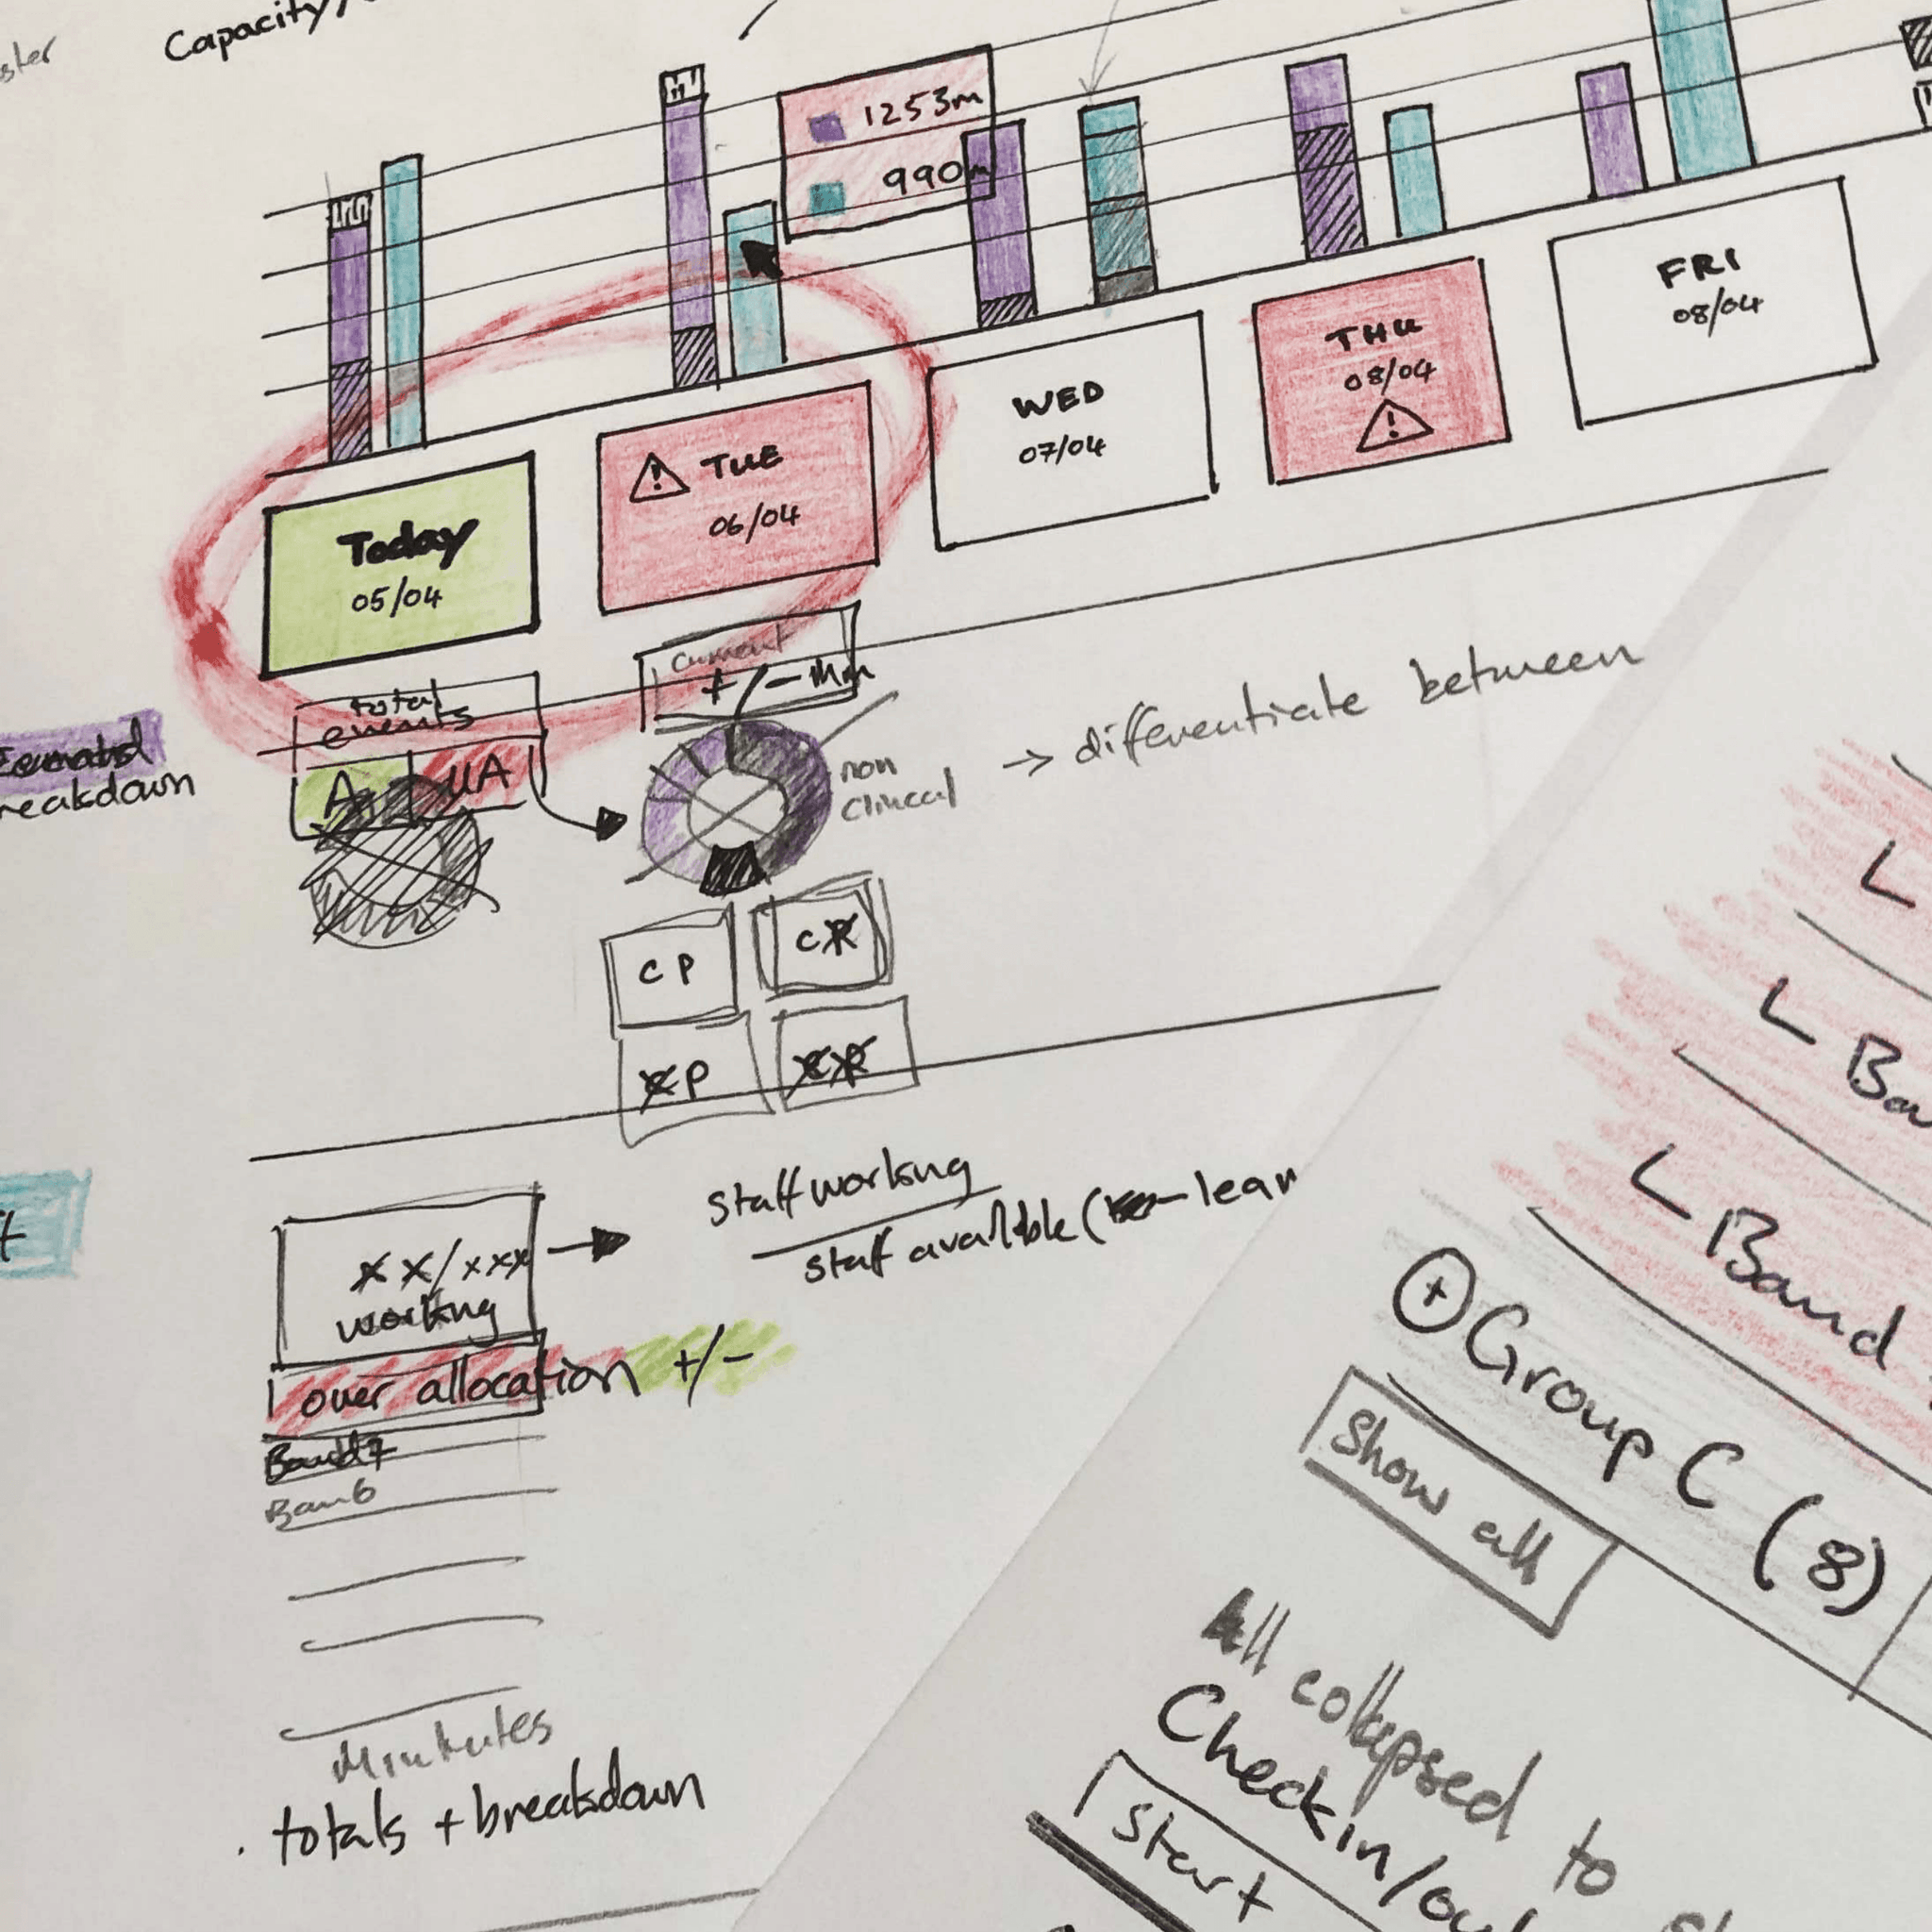 Capacity/
1253m
990m
Today
05/04
TUE
06/04
WED
07/04
THU
08/04
FRI
08/04
total
events
A
UA
current
+/-
non
clinical
→ differentiate between
breakdown
CP
CP
CP
CP
xx/xxx
working
→ staff working
staff available (
1 over allocation +/-
Band 7
Ban 6
Minutes
. totals + breakdown
Ban
Band
+ Group C (8)
Show all
All collapsed to
Checkin/ou
Start